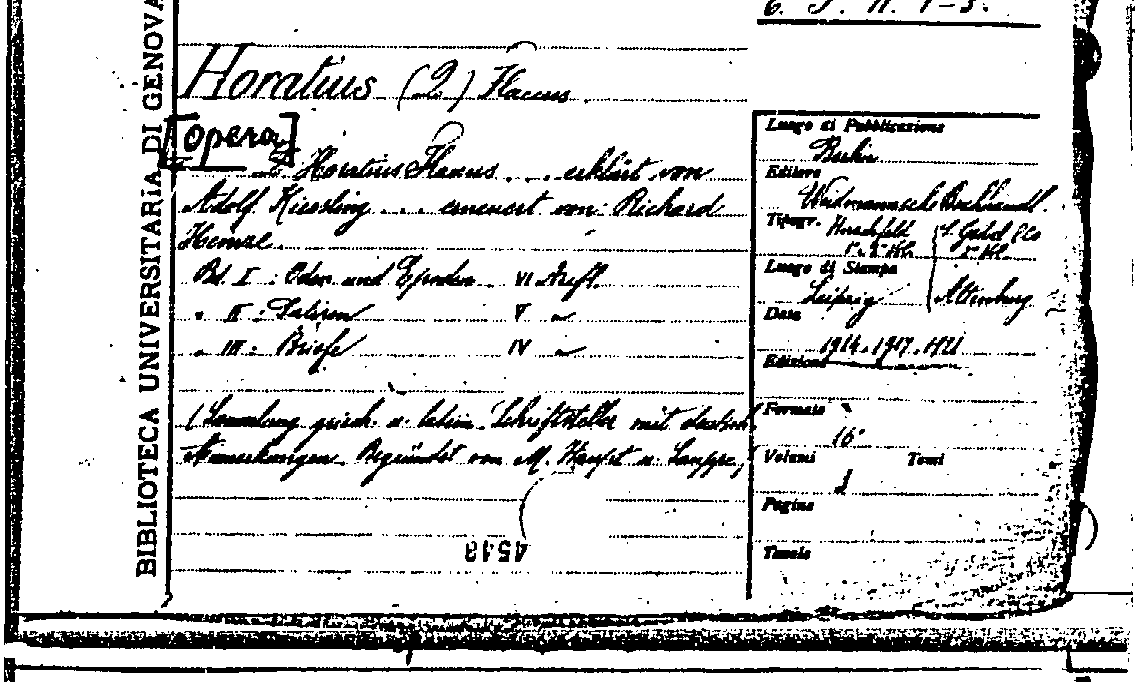 6. J. H. 1-3.
BIBLIOTECA UNIVERSITARIA DI GENOVA
Horatius (Q.) Flaccus
[Opera]
Q. Horatius Flaccus ... erklärt von
Adolf Kiessling ... erneuert von: Richard
Heinze.
Bd. I : Oden und Epoden VI Aufl.
" II : Satiren V "
" III : Briefe IV "
(Sammlung griech. u. latein. Schriftsteller mit deutsch.
Anmerkungen. Begründet von M. Haupt u. Sauppe)
4548
Luogo di Pubblicazione
Berlin
Editore
Weidmannsche Buchhandl.
Tipogr. Hirschfeld
Luogo di Stampa
Leipzig Altenburg
Data
1914.1917.
Edizione
Formato
16°
Volumi Tomi
3
Pagine
Tavole